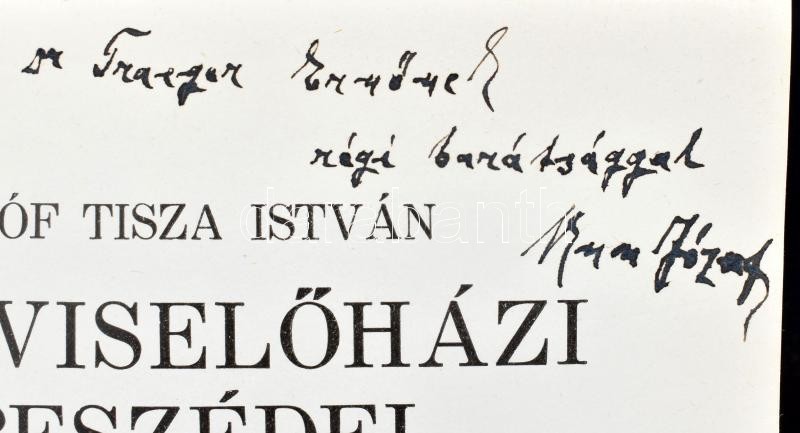 Dr Traeger Ernőnek
régi barátsággal
Kun József
ÓF TISZA ISTVÁN
VISELŐHÁZI
BESZÉDEI
darabanth